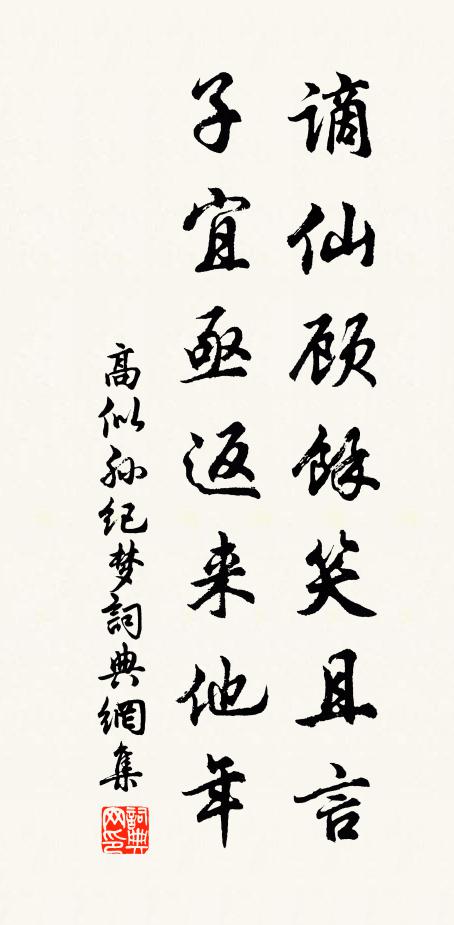 谪仙顾馀笑且言
子宜亟返来他年
高似孙纪梦詞典網集
詞典网印